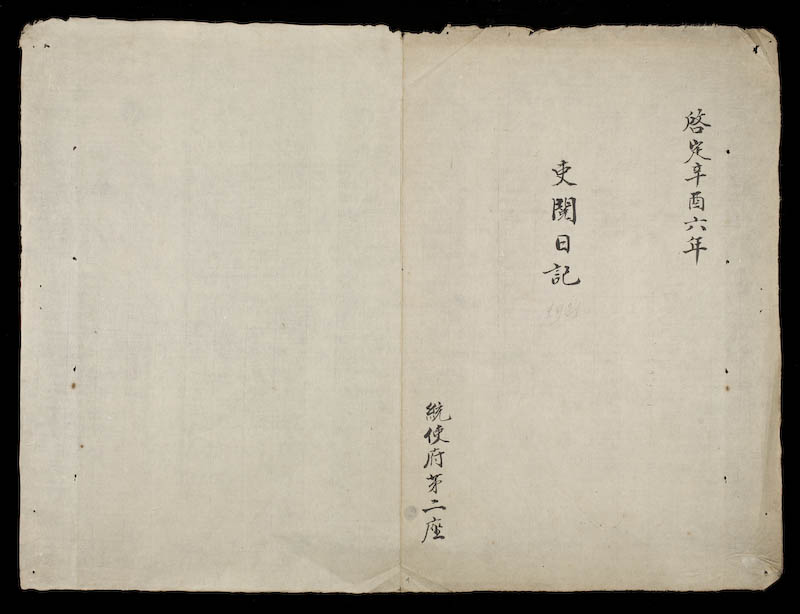 啓定辛酉六年
吏關日記
1921
統使府第二座